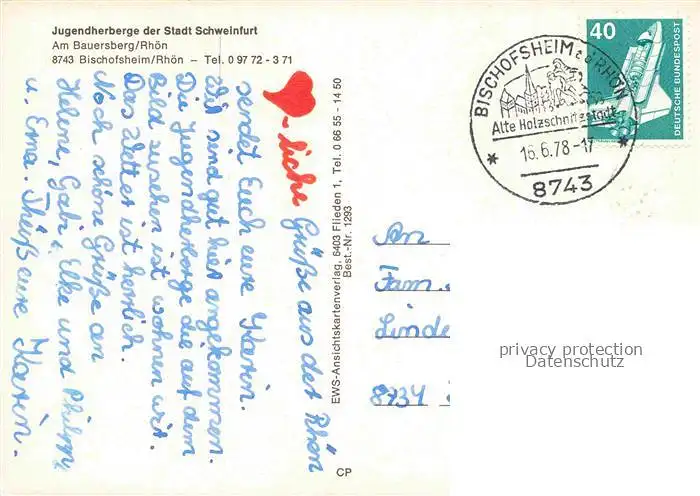 Jugendherberge der Stadt Schweinfurt
Am Bauersberg/Rhön
8743 Bischofsheim/Rhön – Tel. 0 97 72 - 3 71
-liche Grüße aus der Rhön
sendet Euch eure Karin.
Wir sind gut hier angekommen.
Die Jugendherberge die auf dem
Bild zu sehen ist wohnen wir.
Das Wetter ist herrlich.
Noch schöne Grüße an
Helene, Gabi, Elke und Philipp
u. Erna. Tschüß eure Karin.
EWS-Ansichtskartenverlag, 6403 Flieden 1, Tel. 0 66 55 - 14 50
Best.-Nr. 1293
CP
BISCHOFSHEIM a d RHÖN
Alte Holzschnitzstadt
16.6.78-17
8743
40
DEUTSCHE BUNDESPOST
An
Fam.
Linde
8734
privacy protection
Datenschutz